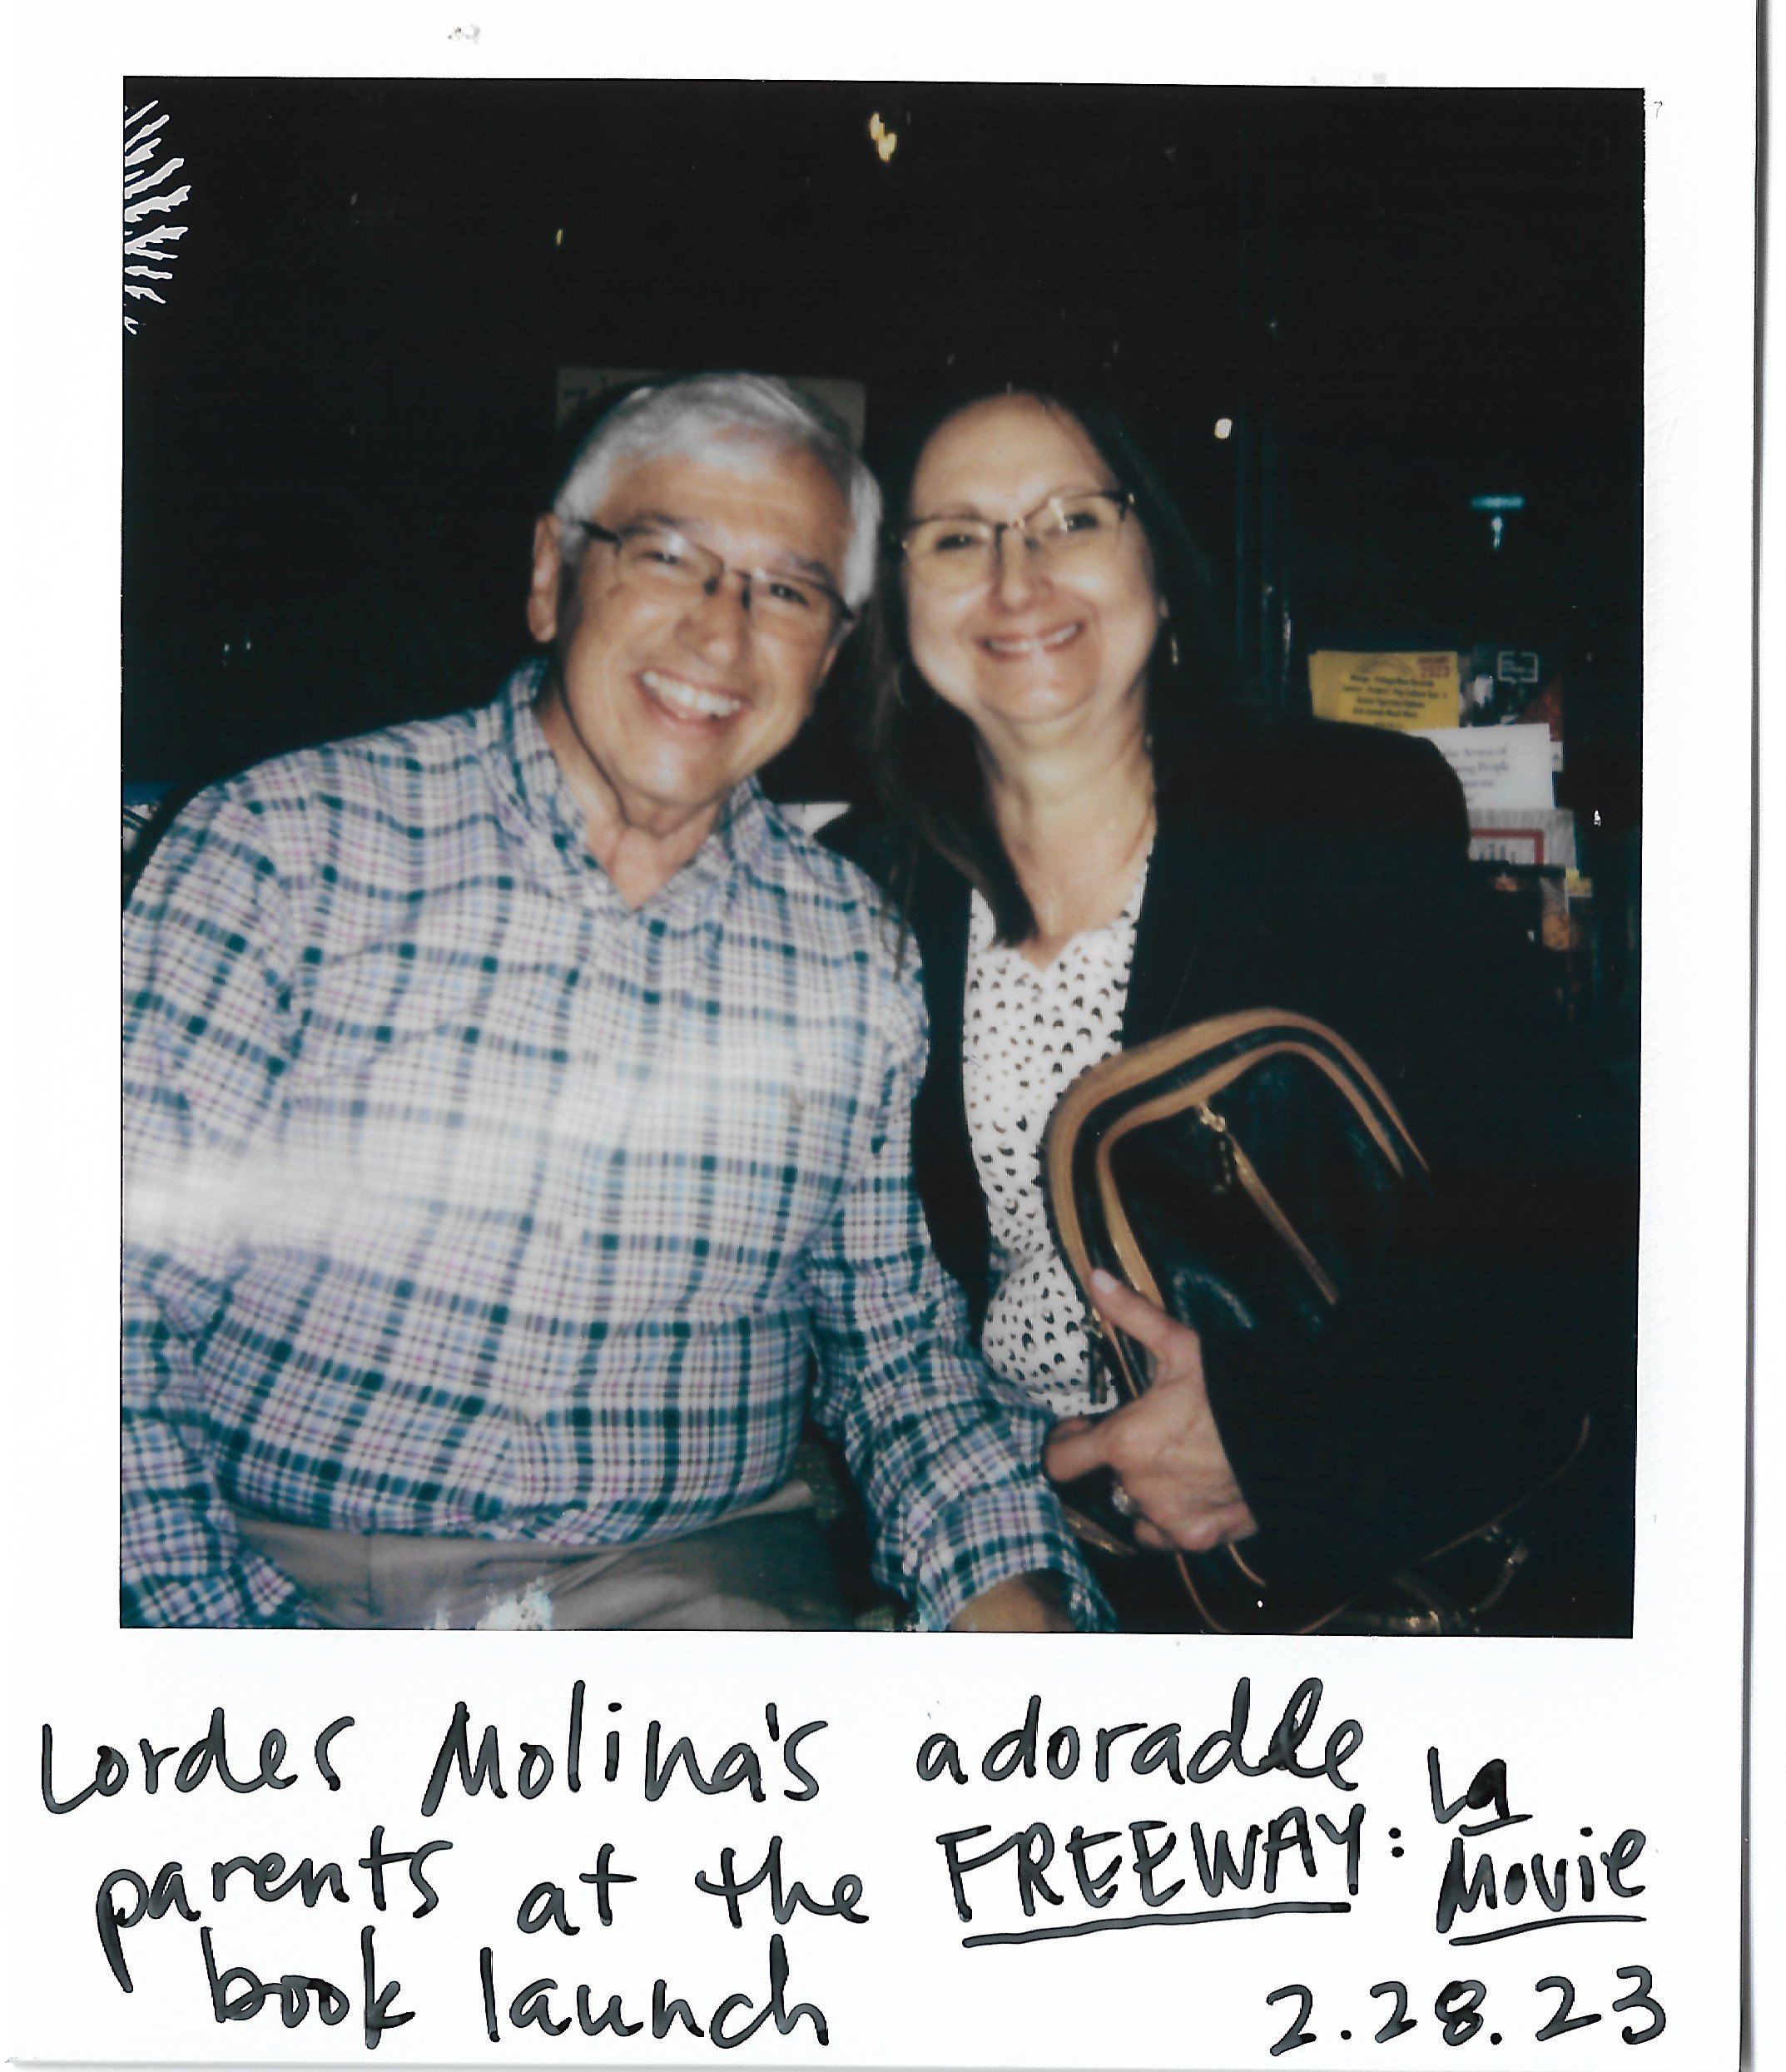 2023
Lordes Molina's adorable
parents at the FREEWAY: La Movie
book launch 2.28.23